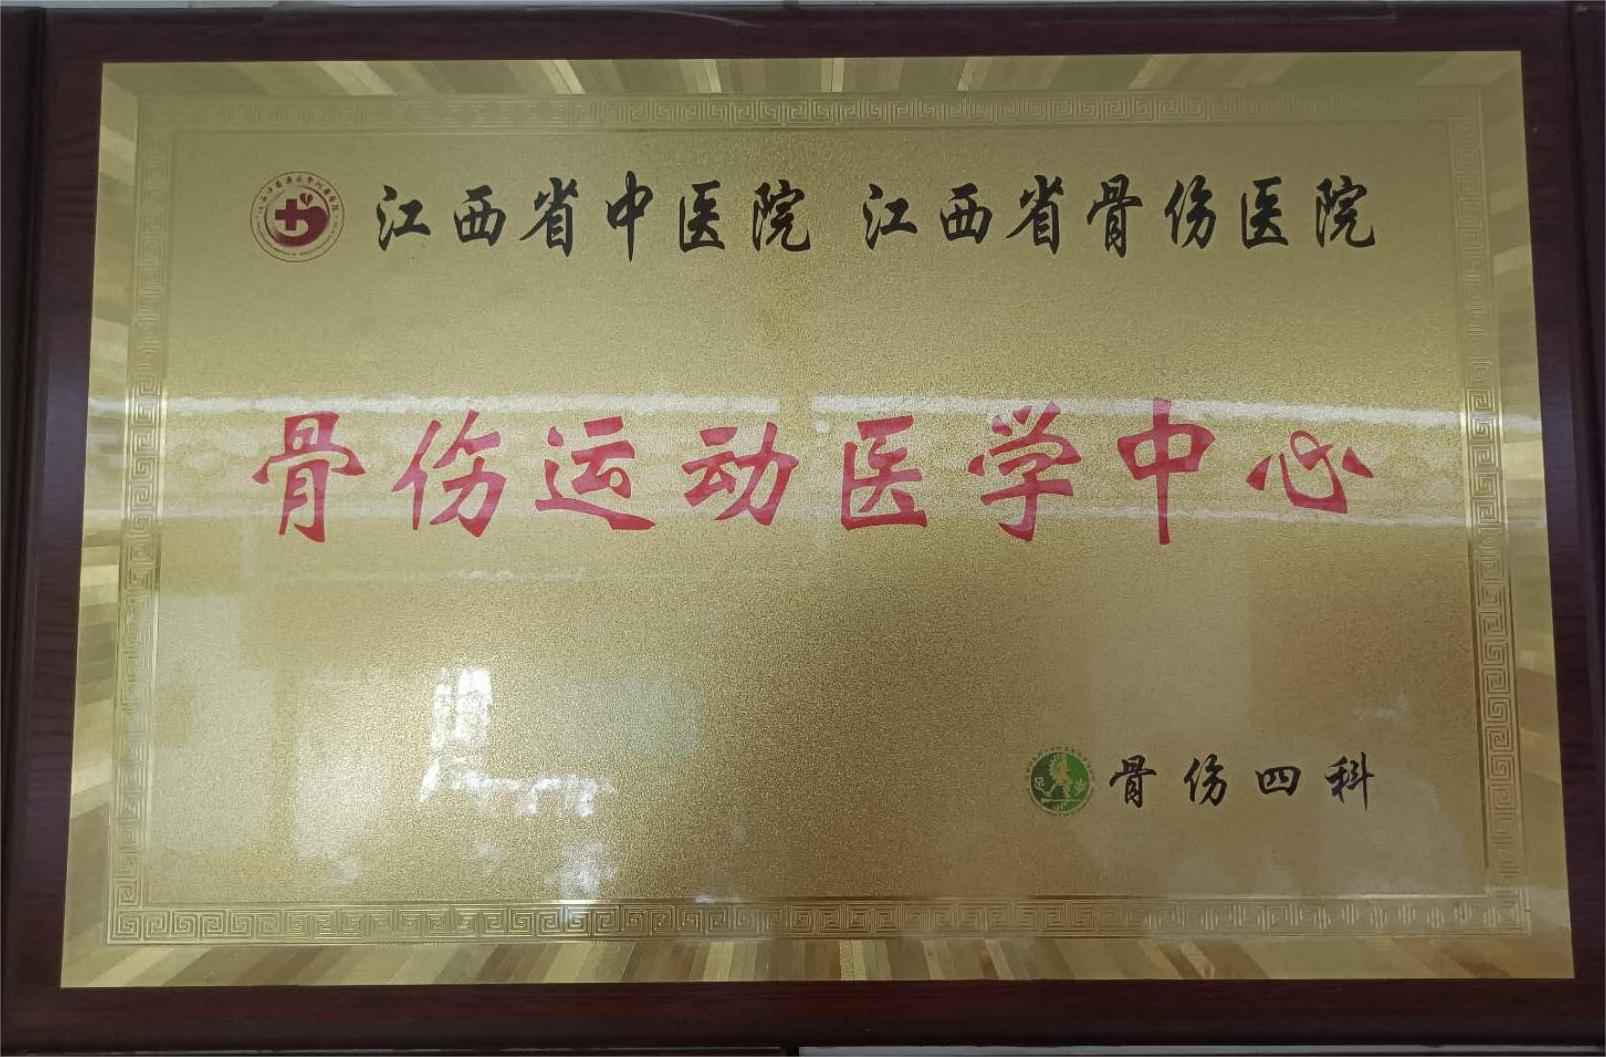 江西省中医院 江西省骨伤医院
骨伤运动医学中心
骨伤四科